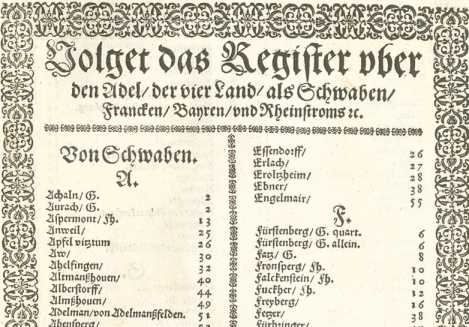 Volget das Register vber
den Adel/ der vier Land/ als Schwaben/
Francken/ Bayren/ vnd Rheinstroms ꝛc.
Von Schwaben.
A.
Achaln/ G. 2
Aurach/ G. 2
Aspermont/ Fh. 13
Anweil/ 25
Apfel viztum 26
Aw/ 30
Ahelfingen/ 32
Altmanßhouen/ 40
Alberstorff/ 44
Almßhouen/ 49
Adelman/ von Adelmanßfelden. 51
Abensperg/
Essendorff/ 26
Erlach/ 27
Eroltzheim/ 28
Ebner/ 38
Engelmair/ 55
F.
Fürstenberg/ G. quart. 6
Fürstenberg/ G. allein. 6
Fatz/ G. 8
Fronsperg/ Fh. 10
Falckenstein/ Fh. 10
Fuckher/ Fh. 12
Freyberg/ 16
Fetzer/ 38
Fürbringer